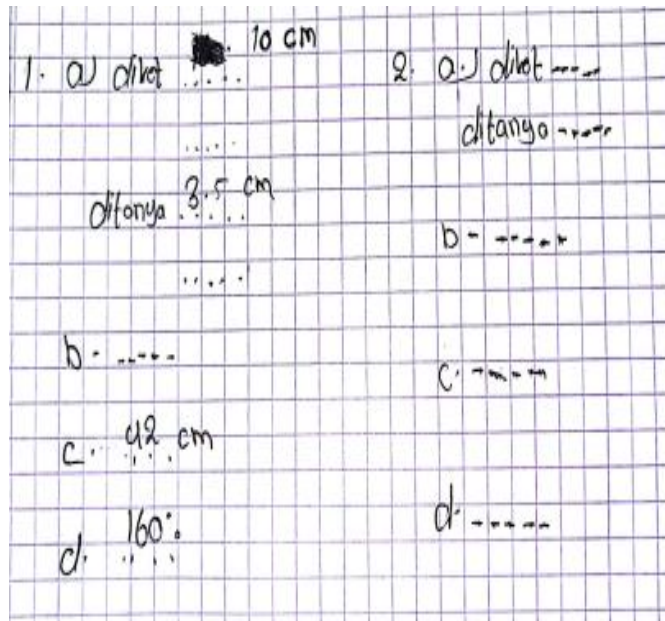 1. a) diket ..... 10 cm
.....
ditanya 3.5 cm
.....
b. .....
c. 42 cm
d. 160%
2. a.) diket ----
ditanya -----
b - -----
c. -----
d. -----